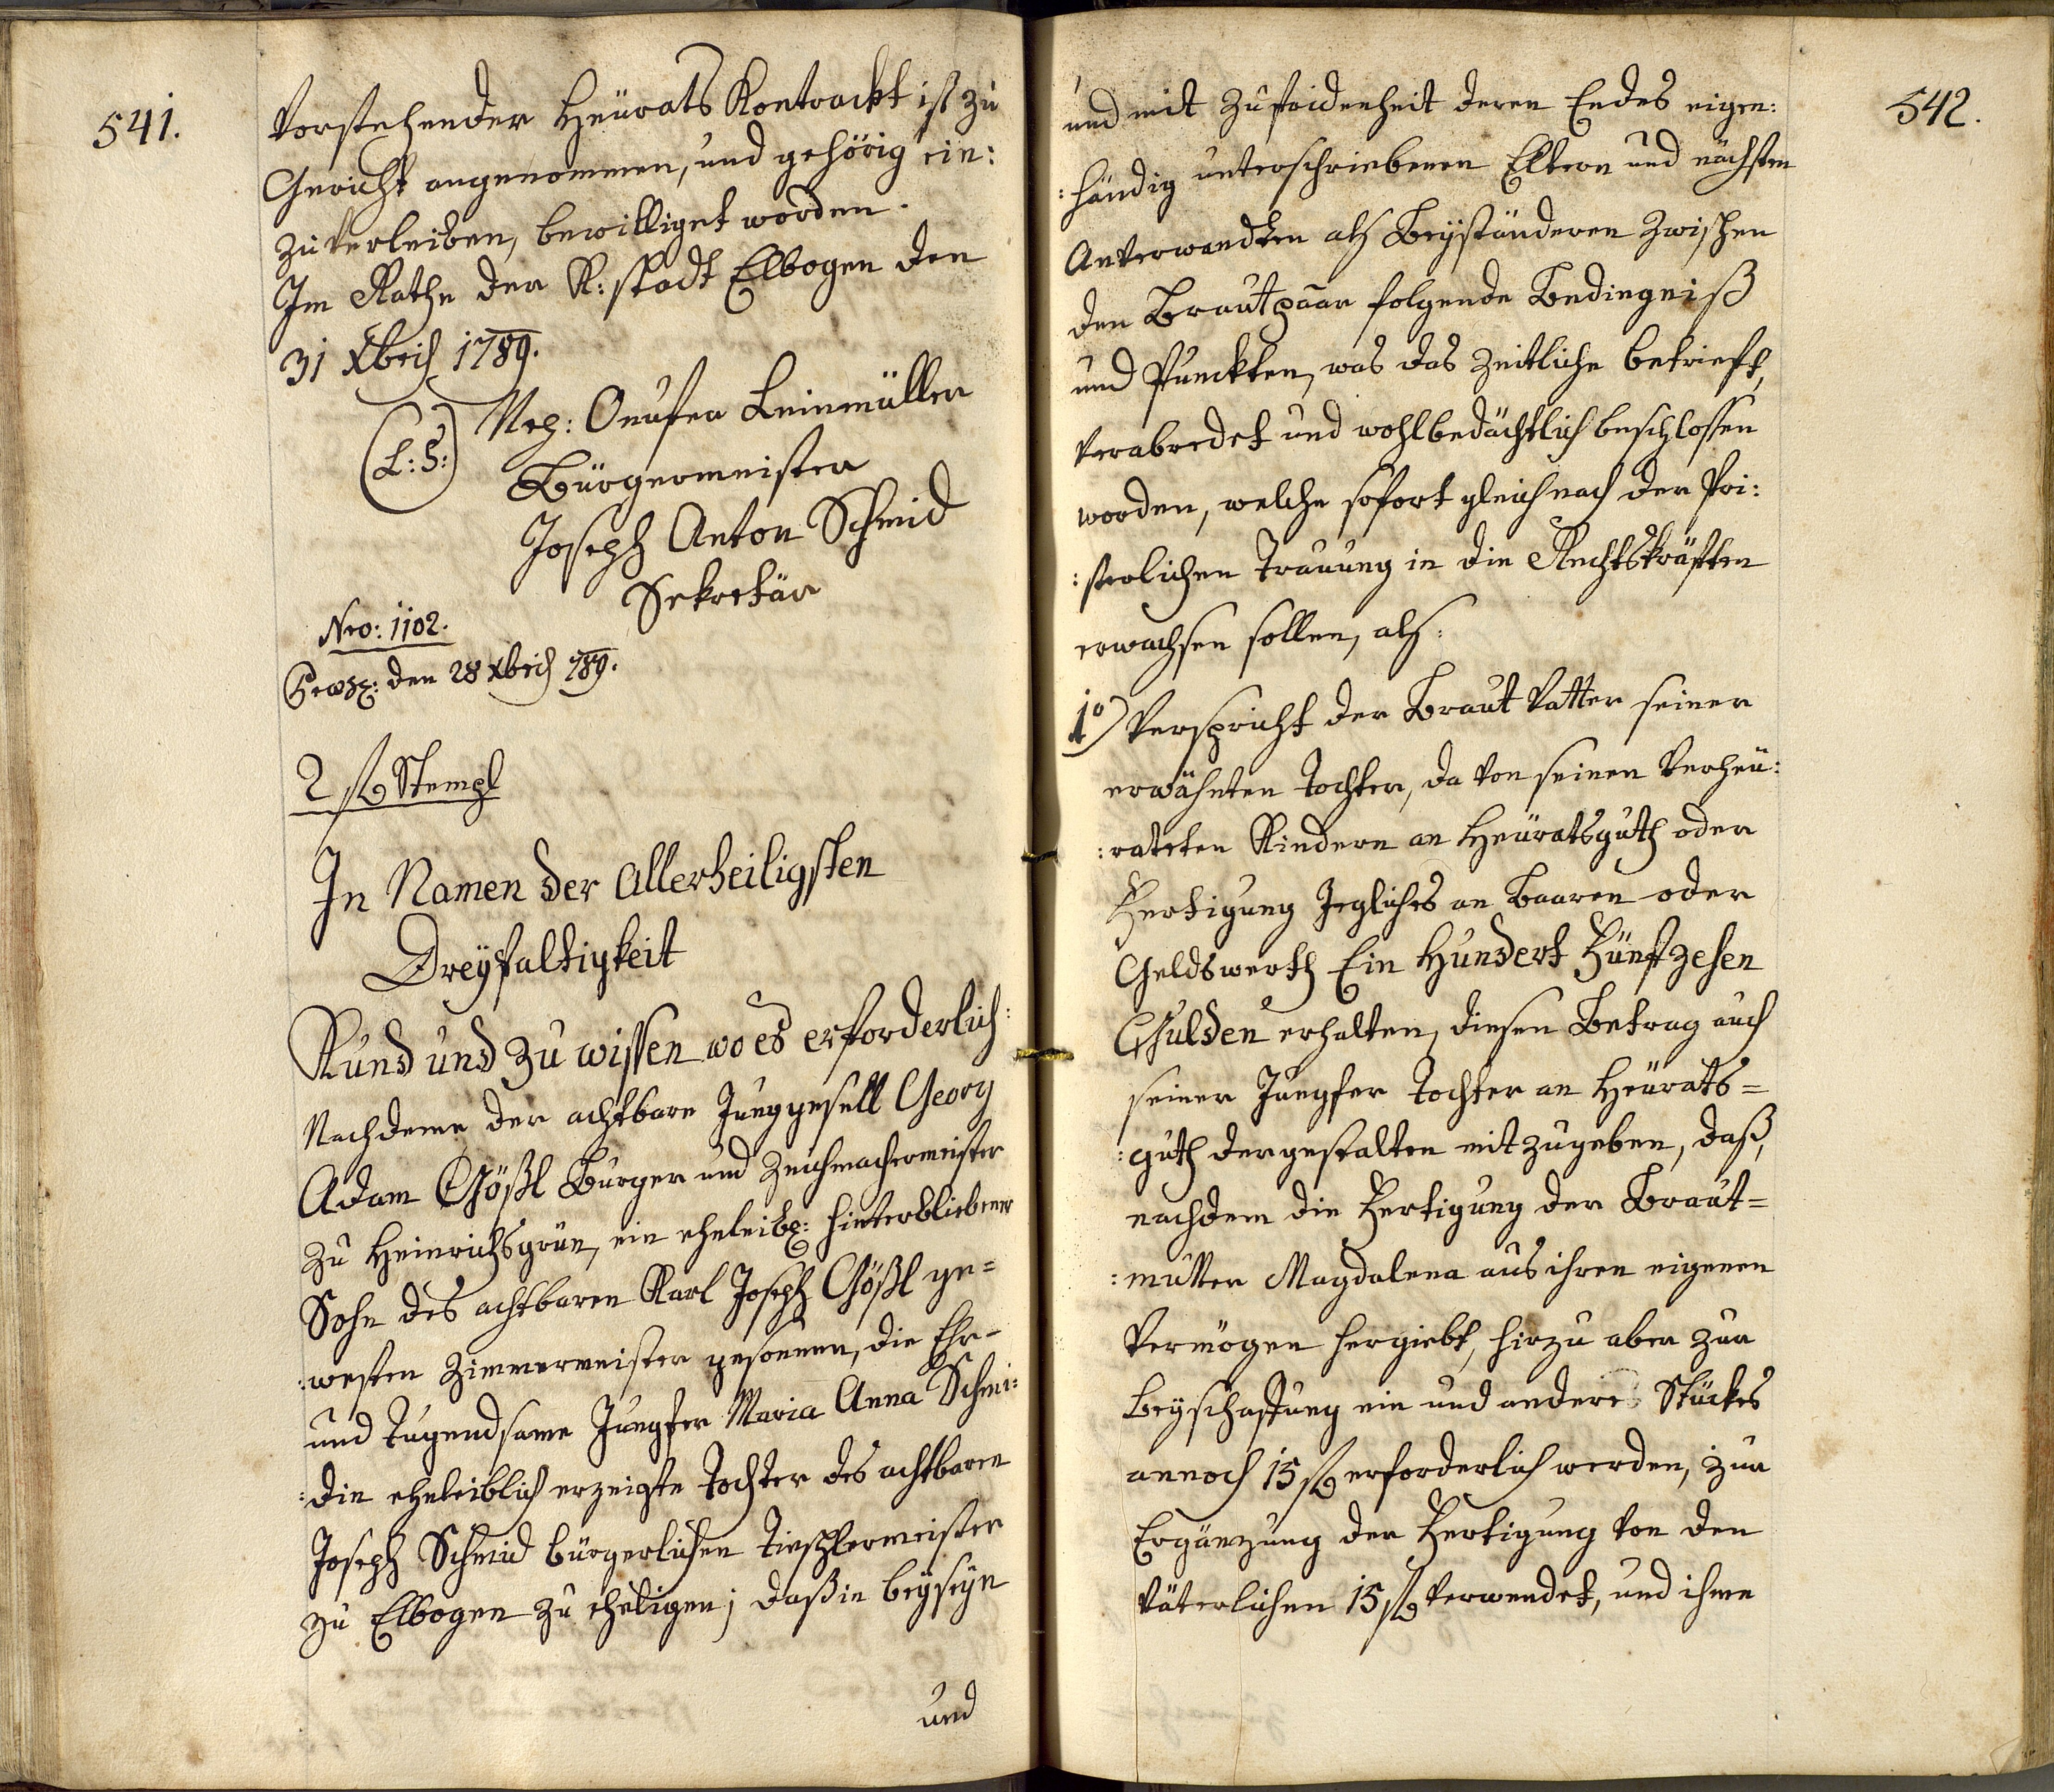 541.
Vorstehender Heurats Kontrackt ist zu
Gericht angenommen, und gehörig ein:
zuverleiben, bewilliget worden.
Im Rathe der K: stadt Elbogen den
31 Xbris 1789.
(L: S:) Onufer Leinmüller
Bürgermeister
Joseph Anton Schmid
Sekretär
Nro: 1102.
den 28 Xbris 789.
2 fl Stempl
In Namen der Allerheiligsten
Dreyfaltigkeit
Kund und zu wissen wo es erforderlich:
Nachdeme der achtbare Junggesell Georg
Adam Gößl Burger und Zeichmachermeister
zu Heinrichsgrün, ein eheleibl: hinterbliebener
Sohn des achtbaren Karl Joseph Gößl ge=
:westen Zimmermeister gesonnen, die Ehr-
und tugendsame Jungfer Maria Anna Schmi:
:din eheleiblich erzeigte Tochter des achtbaren
Joseph Schmid bürgerlichen Tischlermeister
zu Elbogen zu eheligen; daß in beyseyn
und
542.
und mit Zufridenheit deren Endes eigen:
:händig unterschriebenen Eltern und nächsten
Anverwandten als Beyständeren zwischen
den Brautpaar folgende Bedingniß
und Punckten, was das Zeitliche betrieft,
verabredet und wohlbedächtlich beschlossen
worden, welche sofort gleich nach der Pri:
:sterlichen Trauung in die Rechtskräften
erwachsen sollen, als:
1o) Verspricht der Braut Vatter seiner
erwähnten Tochter, da von seinen verheu:
:rateten Kindern an Heuratsguth oder
Fertigung Jegliches an Baaren oder
Geldswerth Ein Hundert Fünfzehen
Gulden erhalten, diesen Betrag auch
seiner Jungfer Tochter an Heurats=
:guth dergestalten mitzugeben, daß,
nachdem die Fertigung der Braut=
:mutter Magdalena aus ihren eigenen
Vermögen hergiebt, hirzu aber zur
Beyschaffung ein und anderes Stückes
annoch 15 fl erforderlich werden, zur
Ergänzung der Fertigung von den
Väterlichen 15 fl verwendet, und ihme